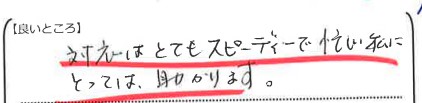 【良いところ】
対応はとてもスピーディーで忙しい私に
とっては、助かります。